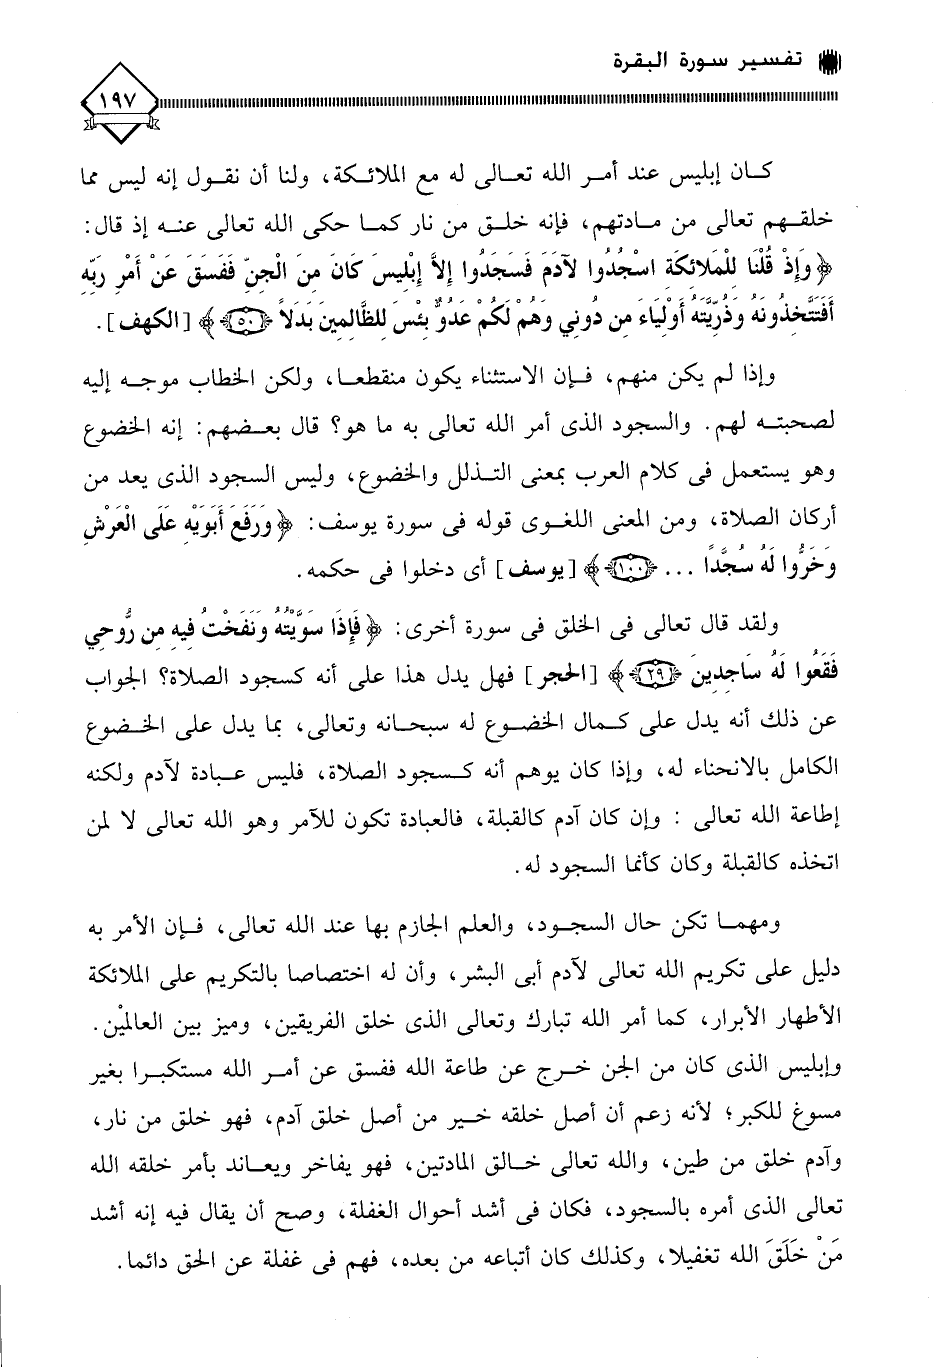 تفسير سورة البقرة
١٩٧
كان إبليس عند أمر الله تعالى له مع الملائكة، ولنا أن نقول إنه ليس مما
خلقهم تعالى من مادتهم، فإنه خلق من نار كما حكى الله تعالى عنه إذ قال:
﴿وَإِذْ قُلْنَا لِلْمَلائِكَةِ اسْجُدُوا لآدَمَ فَسَجَدُوا إِلاَّ إِبْلِيسَ كَانَ مِنَ الْجِنِّ فَفَسَقَ عَنْ أَمْرِ رَبِّهِ
أَفَتَتَّخِذُونَهُ وَذُرِّيَّتَهُ أَوْلِيَاءَ مِن دُونِي وَهُمْ لَكُمْ عَدُوٌّ بِئْسَ لِلظَّالِمِينَ بَدَلاً ﴿٥٠﴾﴾ [الكهف].
وإذا لم يكن منهم، فإن الاستثناء يكون منقطعا، ولكن الخطاب موجه إليه
لصحبته لهم. والسجود الذى أمر الله تعالى به ما هو؟ قال بعضهم: إنه الخضوع
وهو يستعمل فى كلام العرب بمعنى التذلل والخضوع، وليس السجود الذى يعد من
أركان الصلاة، ومن المعنى اللغوى قوله فى سورة يوسف: ﴿وَرَفَعَ أَبَوَيْهِ عَلَى الْعَرْشِ
وَخَرُّوا لَهُ سُجَّدًا ... ﴿١٠٠﴾﴾ [يوسف] أى دخلوا فى حكمه.
ولقد قال تعالى فى الخلق فى سورة أخرى: ﴿فَإِذَا سَوَّيْتُهُ وَنَفَخْتُ فِيهِ مِن رُّوحِي
فَقَعُوا لَهُ سَاجِدِينَ ﴿٢٩﴾﴾ [الحجر] فهل يدل هذا على أنه كسجود الصلاة؟ الجواب
عن ذلك أنه يدل على كمال الخضوع له سبحانه وتعالى، بما يدل على الخضوع
الكامل بالانحناء له، وإذا كان يوهم أنه كسجود الصلاة، فليس عبادة لآدم ولكنه
إطاعة الله تعالى : وإن كان آدم كالقبلة، فالعبادة تكون للآمر وهو الله تعالى لا لمن
اتخذه كالقبلة وكان كأنما السجود له.
ومهما تكن حال السجود، والعلم الجازم بها عند الله تعالى، فإن الأمر به
دليل على تكريم الله تعالى لآدم أبى البشر، وأن له اختصاصا بالتكريم على الملائكة
الأطهار الأبرار، كما أمر الله تبارك وتعالى الذى خلق الفريقين، وميز بين العالميْن.
وإبليس الذى كان من الجن خرج عن طاعة الله ففسق عن أمر الله مستكبرا بغير
مسوغ للكبر؛ لأنه زعم أن أصل خلقه خير من أصل خلق آدم، فهو خلق من نار،
وآدم خلق من طين، والله تعالى خالق المادتين، فهو يفاخر ويعاند بأمر خلقه الله
تعالى الذى أمره بالسجود، فكان فى أشد أحوال الغفلة، وصح أن يقال فيه إنه أشد
مَنْ خَلَقَ الله تغفيلا، وكذلك كان أتباعه من بعده، فهم فى غفلة عن الحق دائما.